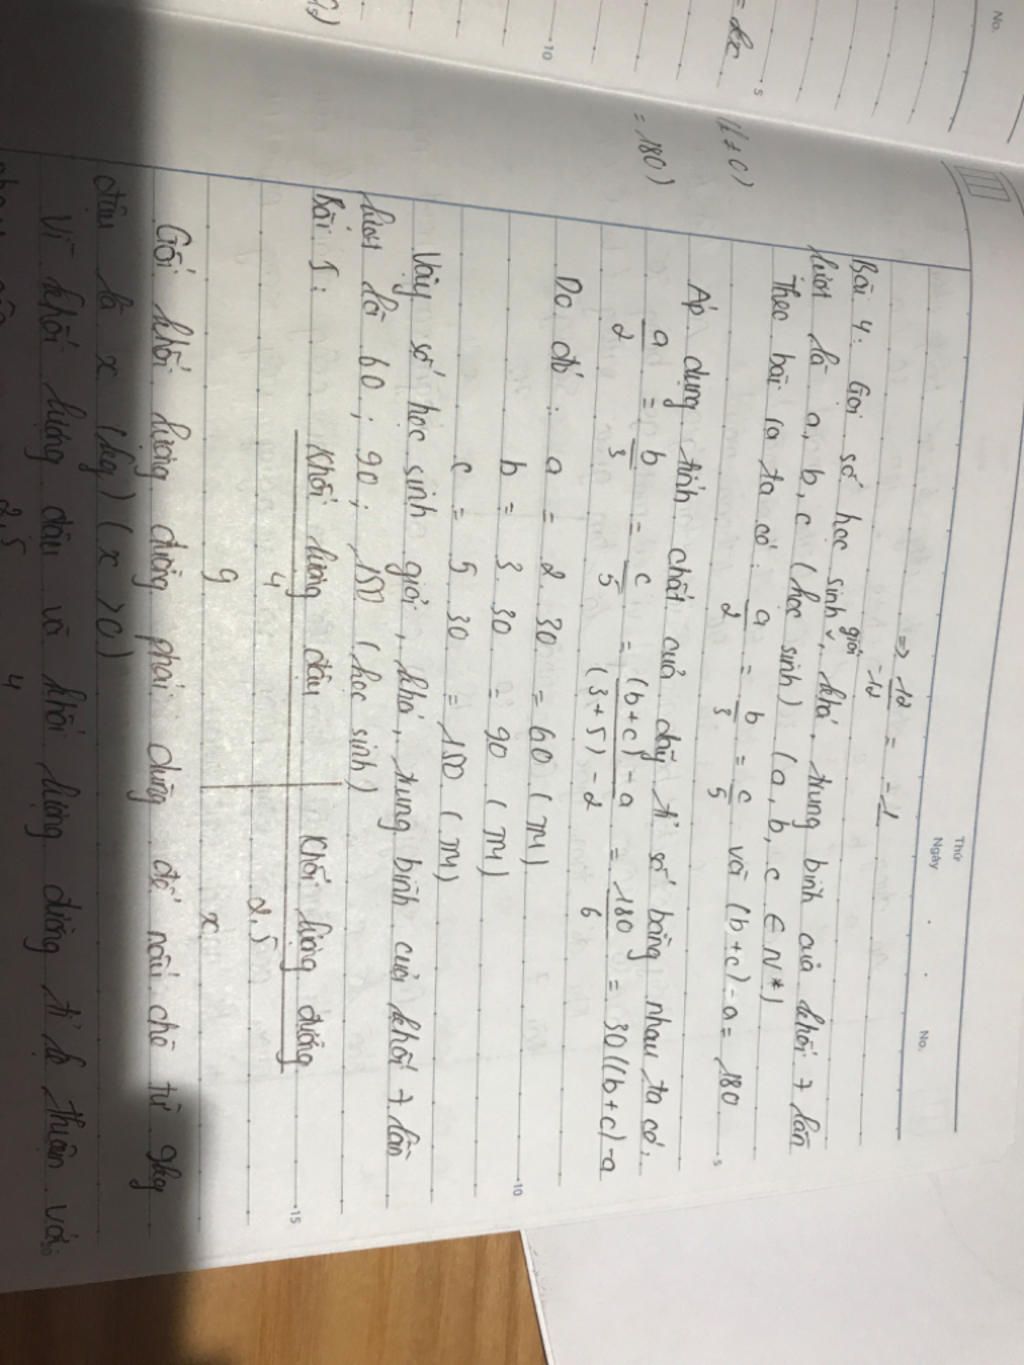 No.
= dx
5
10
(k ≠ 0)
= 180)
Thứ
Ngày
No.
=> 12/-12 = -1
Bài 4: Gọi số học sinh giỏi, khá, trung bình của khối 7 lần
lượt là a, b, c (học sinh) (a, b, c ∈ N*)
Theo bài ra ta có: a/2 = b/3 = c/5 và (b+c) - a = 180
5
Áp dụng tính chất của dãy tỉ số bằng nhau ta có:
a/2 = b/3 = c/5 = (b+c) - a/(3+5) - 2 = 180/6 = 30 ((b+c) - a
Do đó: a = 2. 30 = 60 (TM)
b = 3. 30 = 90 (TM)
10
c = 5. 30 = 150 (TM)
Vậy số học sinh giỏi, khá, trung bình của khối 7 lần
lượt là 60; 90; 150 (học sinh)
Bài 1:
Khối lượng đậu Khối lượng đường
15
4 2,5
9 x
Gối khối lượng đường phải dùng để nấu chè từ 9kg
đậu là x (kg) (x > 0)
Vì khối lượng đậu và khối lượng đường tỉ lệ thuận với
20
2,5 4